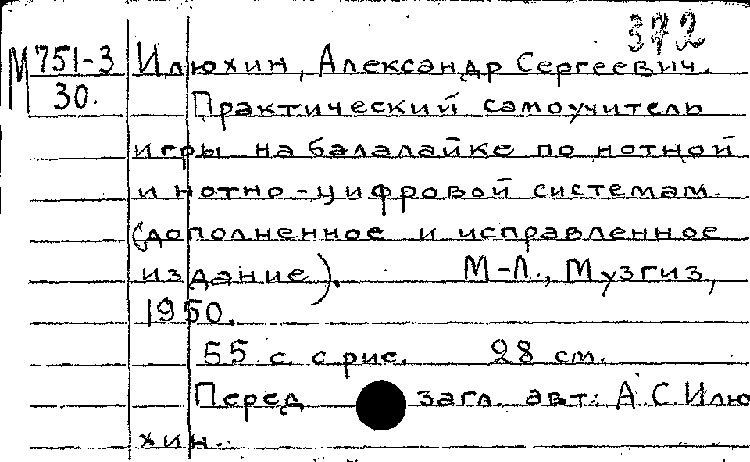 372
М 751-3 Илюхин, Александр Сергеевич.
30. Практический самоучитель
игры на балалайке по нотной
и нотно-цифровой системам
(дополненное и исправленное
издание). М-Л., Музгиз,
1950.
55 с. с рис. 28 см.
Перед загл. авт: А.С. Илю
хин.